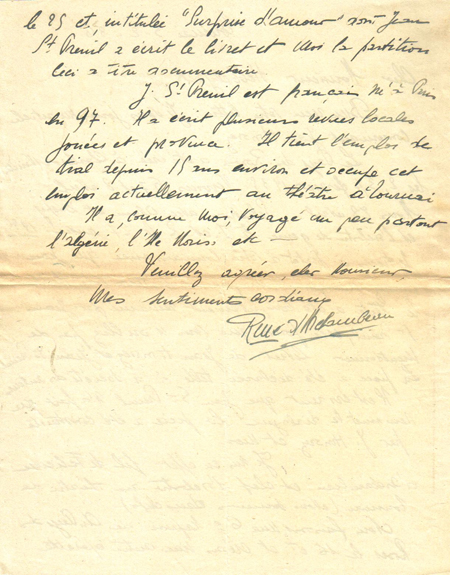 le 25 ct, intitulée "Surprise d'amour" dont Jean
St Preuil a écrit le livret et moi la partition
ceci à titre documentaire.
J. St Preuil est français né à Paris
en 97. Il a écrit plusieurs revues locales
jouées en province. Il tient l'emploi de
trial depuis 15 ans environ et occupe cet
emploi actuellement au théâtre à Tournai
Il a, comme moi, voyagé un peu partout
l'Algérie, l'Ile Maurice, etc —
Veuillez agréer, cher Monsieur
mes sentiments cordiaux